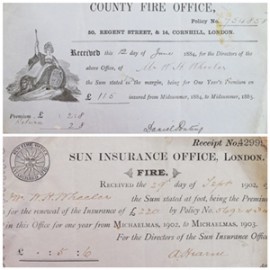 COUNTY FIRE OFFICE,
Policy No.
50, REGENT STREET, & 14, CORNHILL, LONDON.
Received this 12th day of June 1884, for the Directors of the
above Office, of Mr W H Wheeler
the Sum stated in the margin, being for One Year's Premium on
£ 115 insured from Midsummer, 1884, to Midsummer, 1885.
Premium £
Receipt No.
SUN INSURANCE OFFICE, LONDON.
FIRE.
RECEIVED the 29 day of Sept 1902,
Mr W. H. Wheeler the Sum stated at foot, being the Premium
for the renewal of the Insurance of £ 220 by Policy No.
in this Office for one year from MICHAELMAS, 1902, to MICHAELMAS, 1903.
For the Directors of the Sun Insurance Office
: 5 : 6